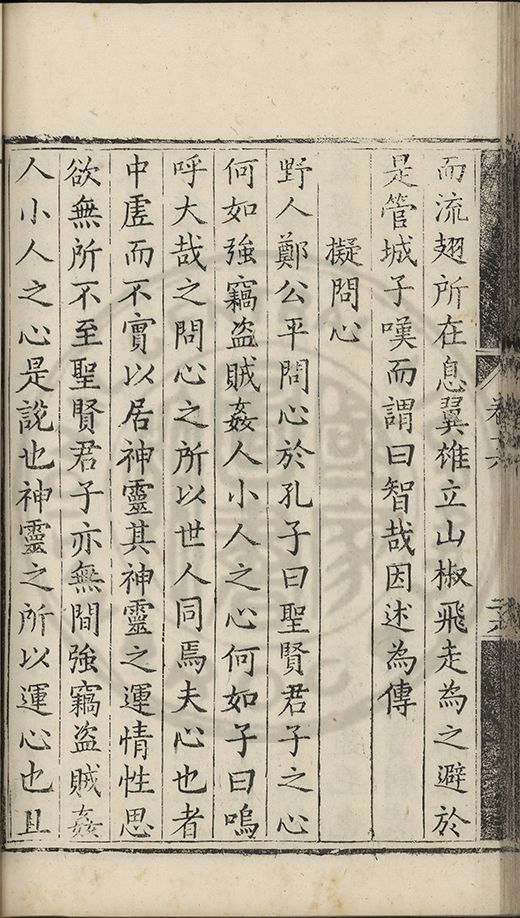 而流翅所在息翼雄立山椒飛走為之避於
是管城子嘆而謂曰智哉因述為傳
擬問心
野人鄭公平問心於孔子曰聖賢君子之心
何如強竊盗賊姦人小人之心何如子曰嗚
呼大哉之問心之所以世人同焉夫心也者
中虗而不實以居神靈其神靈之運情性思
欲無所不至聖賢君子亦無間強竊盗賊姦
人小人之心是說也神靈之所以運心也且